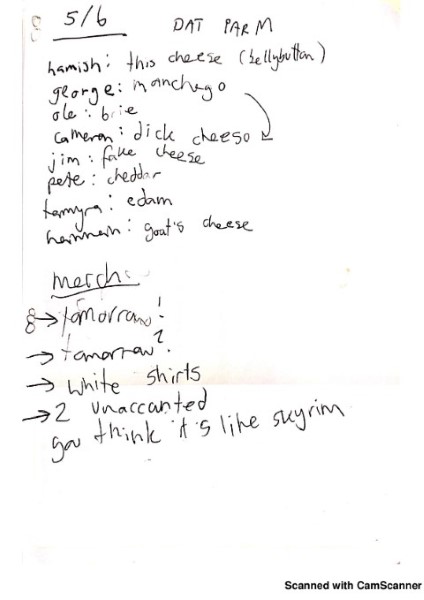 5/6 DAT PAR M
hamish: this cheese (bellybutton)
george: manchego
ole: brie
cameron: dick cheeso
jim: fake cheese
pete: cheddar
tamyra: edam
hannah: goat's cheese
merch:
8→ tomorrow!
→ tomorrow?
→ white shirts
→ 2 unaccanted
you think it's like skyrim
Scanned with CamScanner